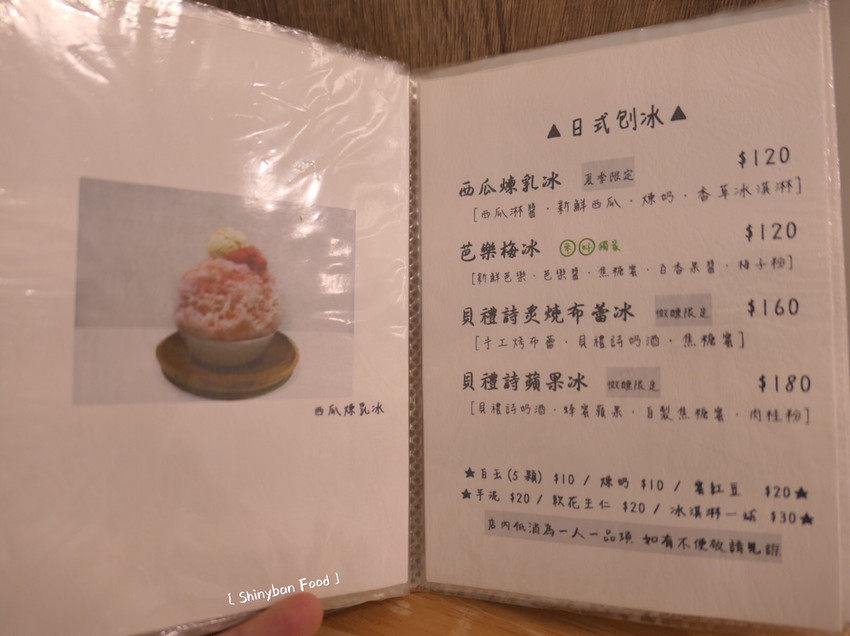 西瓜煉乳冰
[ Shinyban Food ]
▲日式刨冰▲
西瓜煉乳冰 夏季限定 $120
[西瓜淋醬·新鮮西瓜·煉奶·香草冰淇淋]
芭樂梅冰 獨家 $120
[新鮮芭樂·芭樂醬·焦糖蜜·百香果醬·梅子粉]
貝禮詩炙燒布蕾冰 微醺限定 $160
[手工烤布蕾·貝禮詩奶酒·焦糖蜜]
貝禮詩蘋果冰 微醺限定 $180
[貝禮詩奶酒·蜂蜜蘋果·自製焦糖蜜·肉桂粉]
★白玉(5顆) $10 / 煉奶 $10 / 蜜紅豆 $20★
★芋泥 $20 / 軟花生仁 $20 / 冰淇淋一球 $30★
店內低消為一人一品項 如有不便敬請見諒